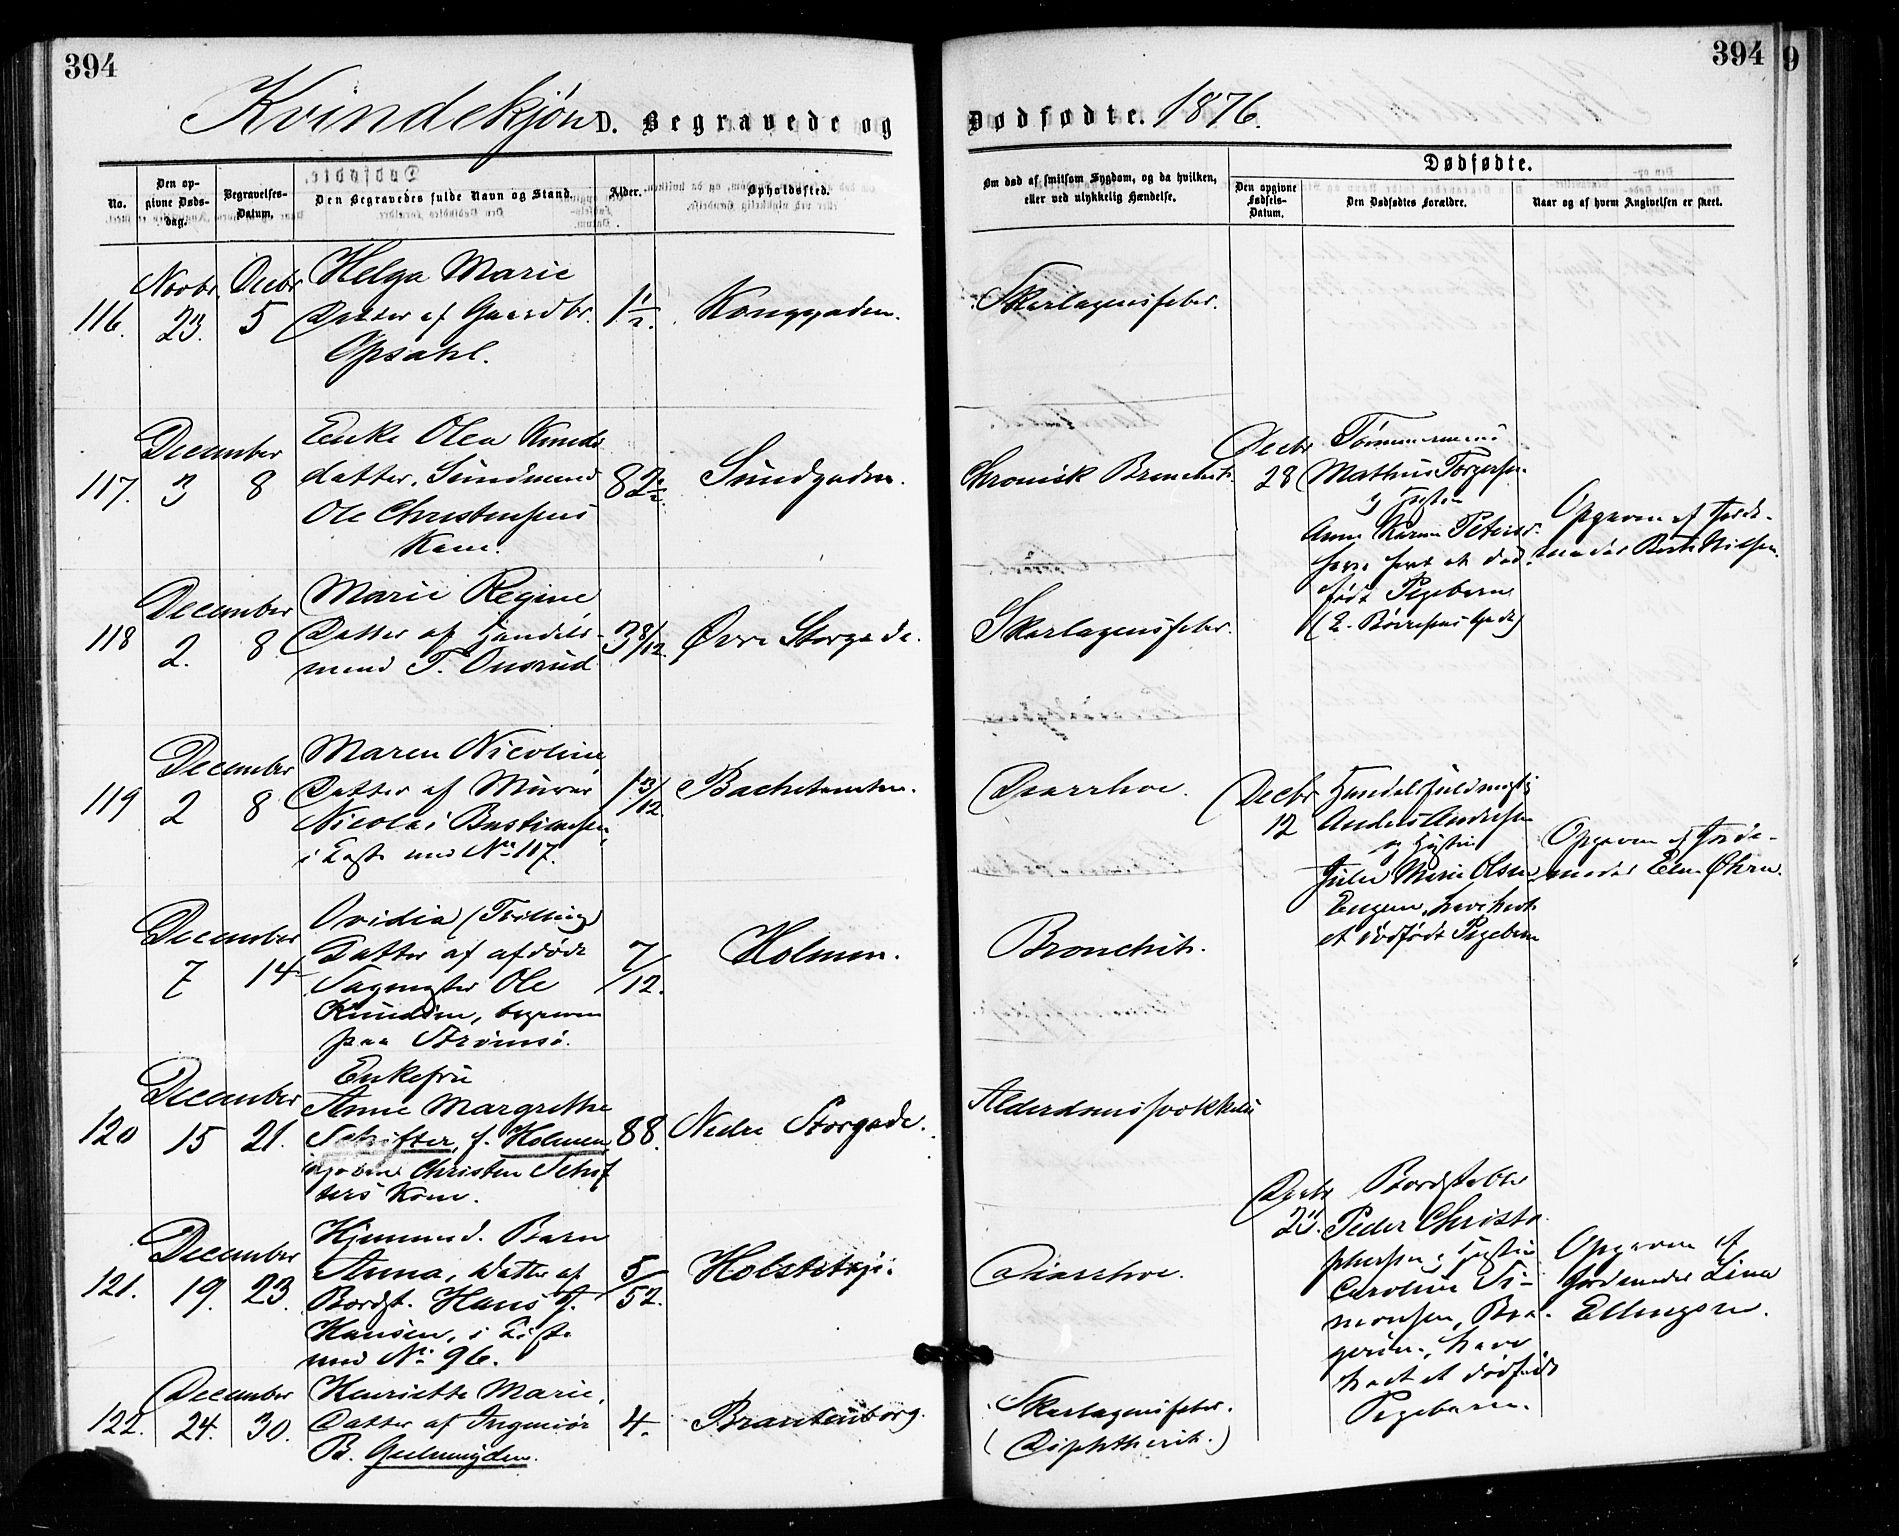 394
394
9
Kvindekjøn D. Begravede og
Dødfødte. 1876.
No.
Den opgivne Dødsdag.
Begravelses-Datum.
Den Begravedes fulde Navn og Stand.
Alder.
Opholdssted.
Om død af smitsom Sygdom, og da hvilken, eller ved ulykkelig Hændelse.
Dødfødte.
Den opgivne Fødsels-Datum.
Den Dødfødtes Forældre.
Naar og af hvem Angivelsen er skeet.
Novbr. Decbr Helga Marie
116. 23. 5 Datter af Gaardbr. 1 1/2. Konggaden. Skarlagensfeber.
Opsahl.
December Enke Olea Knuds
117. 3 8 datter, Sundmand 82 1/2. Sundgaden. Chronisk Bronchit.
Ole Christensens
Kone.
December Marie Regine
118 2. 8 Datter af Handels- 3 8/12. Øvre Storgade. Skarlagensfeber.
mand T. Onsrud
December Maren Nicoline
119 2 8 Datter af Murer 1 3/12. Bachetomten. Diarrhoe.
Nicolai Bastiansen,
i Kiste med No 117.
December Ovidia (Tvilling)
7 14 Datter af afdøde 7/12. Holmen. Bronchit.
Sagmester Ole
Knudsen, begraven
paa Strømsø.
Enkefru
December Anne Margrethe
120 15 21. Schifter, f. Holmen, 88. Nedre Storgade. Alderdomssvakkelse
Christen Schif
ters Kone.
Hjemmed. Barn
December Anna, Datter af
121. 19. 23. Bordst. Hans J. 5/52. Diarrhoe.
Hansen, i Kiste
med No 96.
December Henriette Marie,
122. 24. 30. Datter af Ingeniør 4. Brantenborg. Skarlagensfeber.
B. (Diphtherit.)
Decbr Tømmermand
28 Mathias Torgersen
og Hustru
Anne Karine Peders-
have havt et død-
født Pigebarn
Opgaven af Jorde-
moder Berthe Nilsen.
Decbr Handelsfuldmægtig
12 Anders Andersen
og Hustru
Julie Marie Olsen
Engene, have havt
et dødfødt Pigebarn
Opgaven af Jorde-
moder Elen Øhrn.
Decbr Bordstabler
Peder Christo
phersen og Hustru
Caroline Si-
monsen, Bra-
gerøen, have
havt et dødfødt
Pigebarn.
Opgaven af
Jordemoder Lina
Ellingsen.